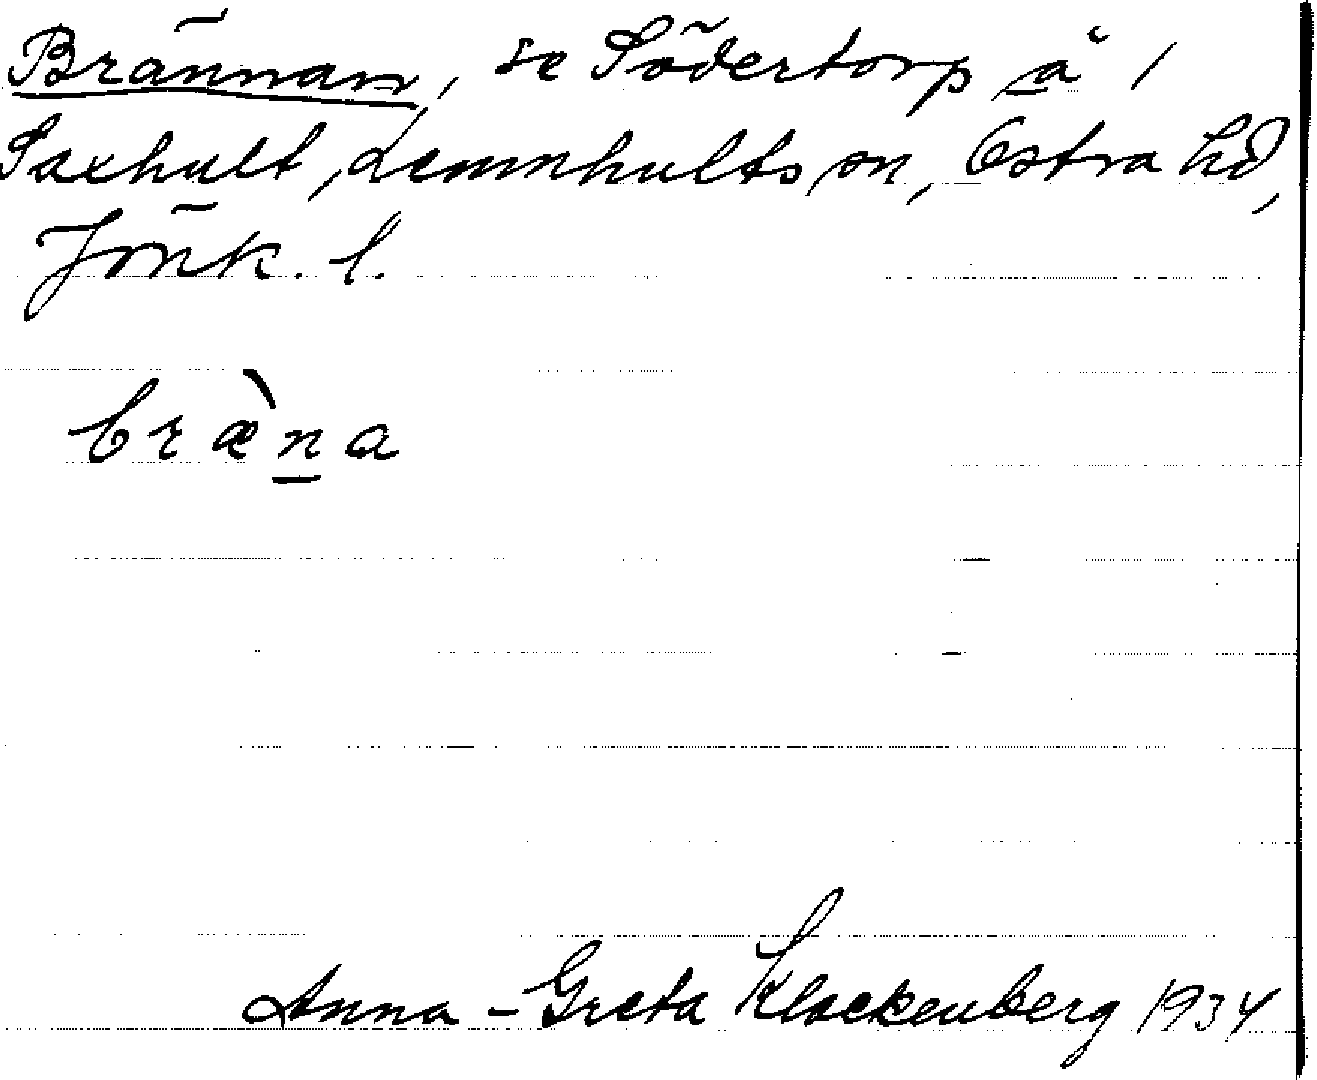 Brännan, se Södertorp på 1
Saxhult, Lemnhults sn, Östra hd,
Jönk. l.
bræ̀n̲a
Anna-Greta Klockenberg 1934